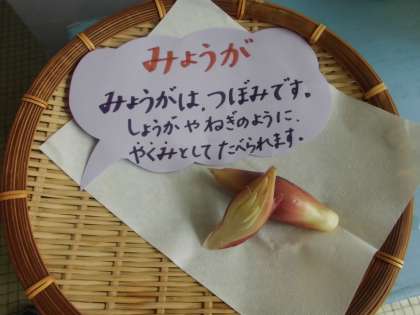 みょうが
みょうがは、つぼみです。
しょうがやねぎのように、
やくみとしてたべられます。